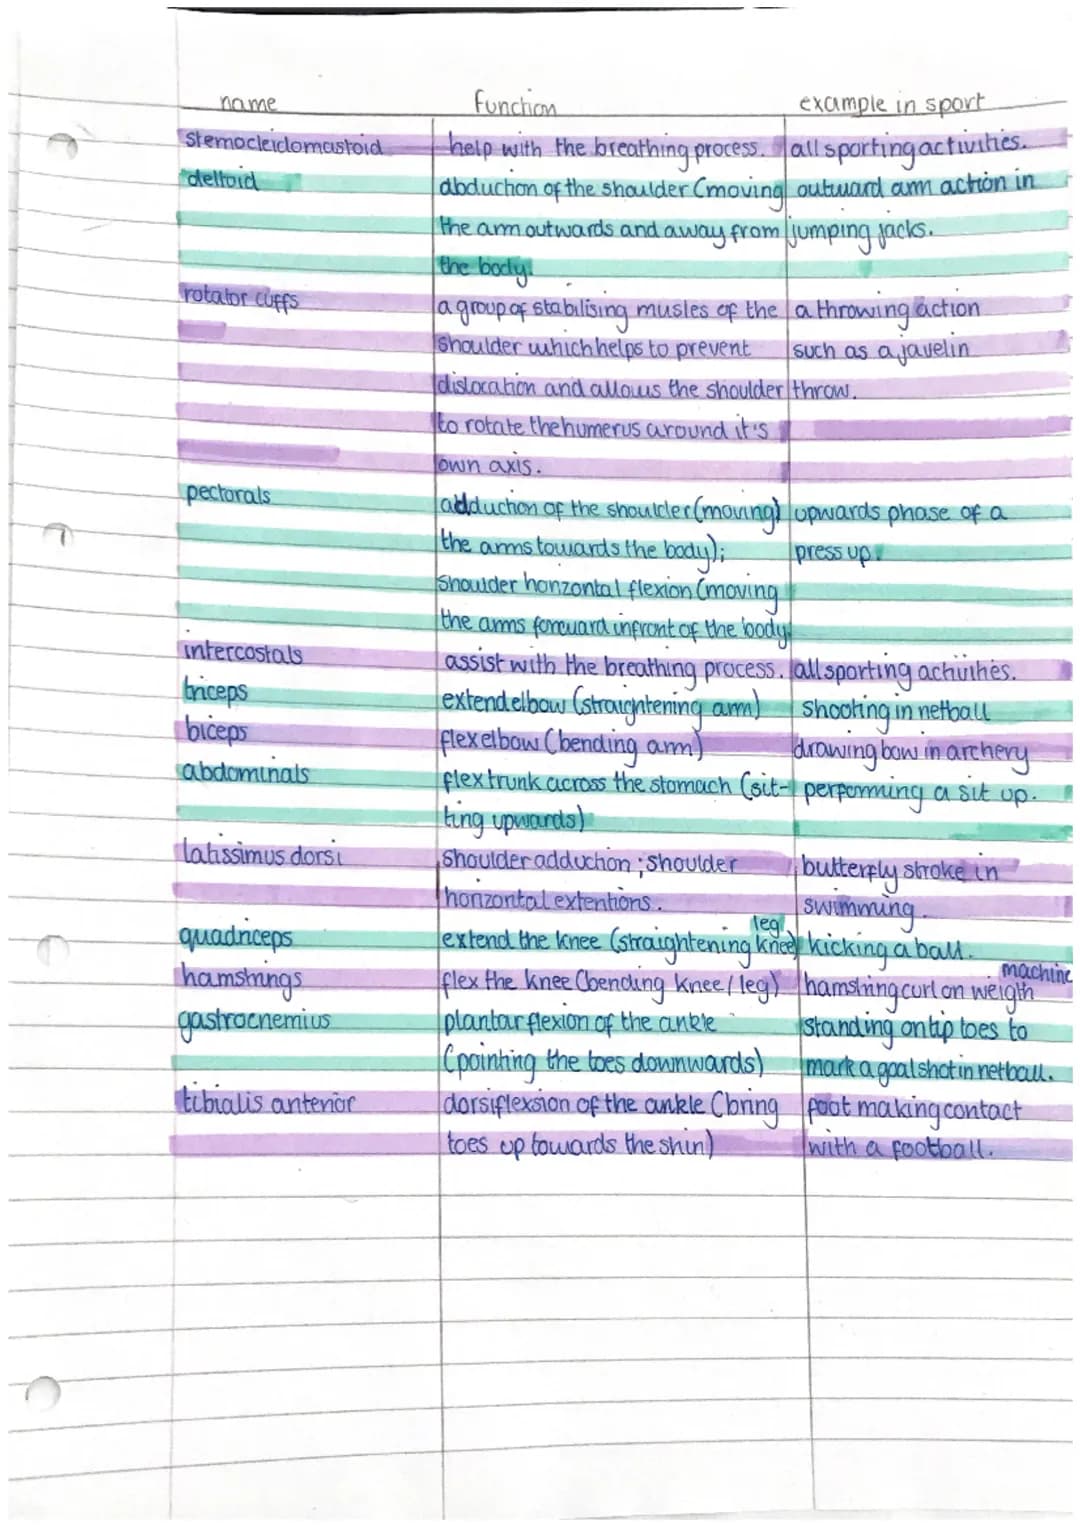 name function example in sport
sternocleidomastoid help with the breathing process. all sporting activities.
deltoid abduction of the shoulder (moving outward arm action in
the arm outwards and away from jumping jacks.
the body.
rotator cuffs a group of stabilising musles of the a throwing action
shoulder which helps to prevent such as a javelin
dislocation and allows the shoulder throw.
to rotate the humerus around it's
own axis.
pectorals adduction of the shoulder (moving) upwards phase of a
the arms towards the body); press up.
shoulder horizontal flexion (moving
the arms forward infront of the body.
intercostals assist with the breathing process. all sporting activities.
triceps extend elbow (straightening arm) shooting in netball
biceps flex elbow (bending arm) drawing bow in archery
abdominals flex trunk across the stomach (sit- performing a sit up.
ting upwards)
latissimus dorsi shoulder adduction; shoulder butterfly stroke in
horizontal extentions. swimming.
leg
quadriceps extend the knee (straightening knee) kicking a ball.
machine
hamstrings flex the knee (bending knee/leg) hamstring curl on weigth
gastrocnemius plantar flexion of the ankle standing on tip toes to
(pointing the toes downwards) mark a goal shot in netball.
tibialis anterior dorsiflexsion of the ankle (bring foot making contact
toes up towards the shin) with a football.